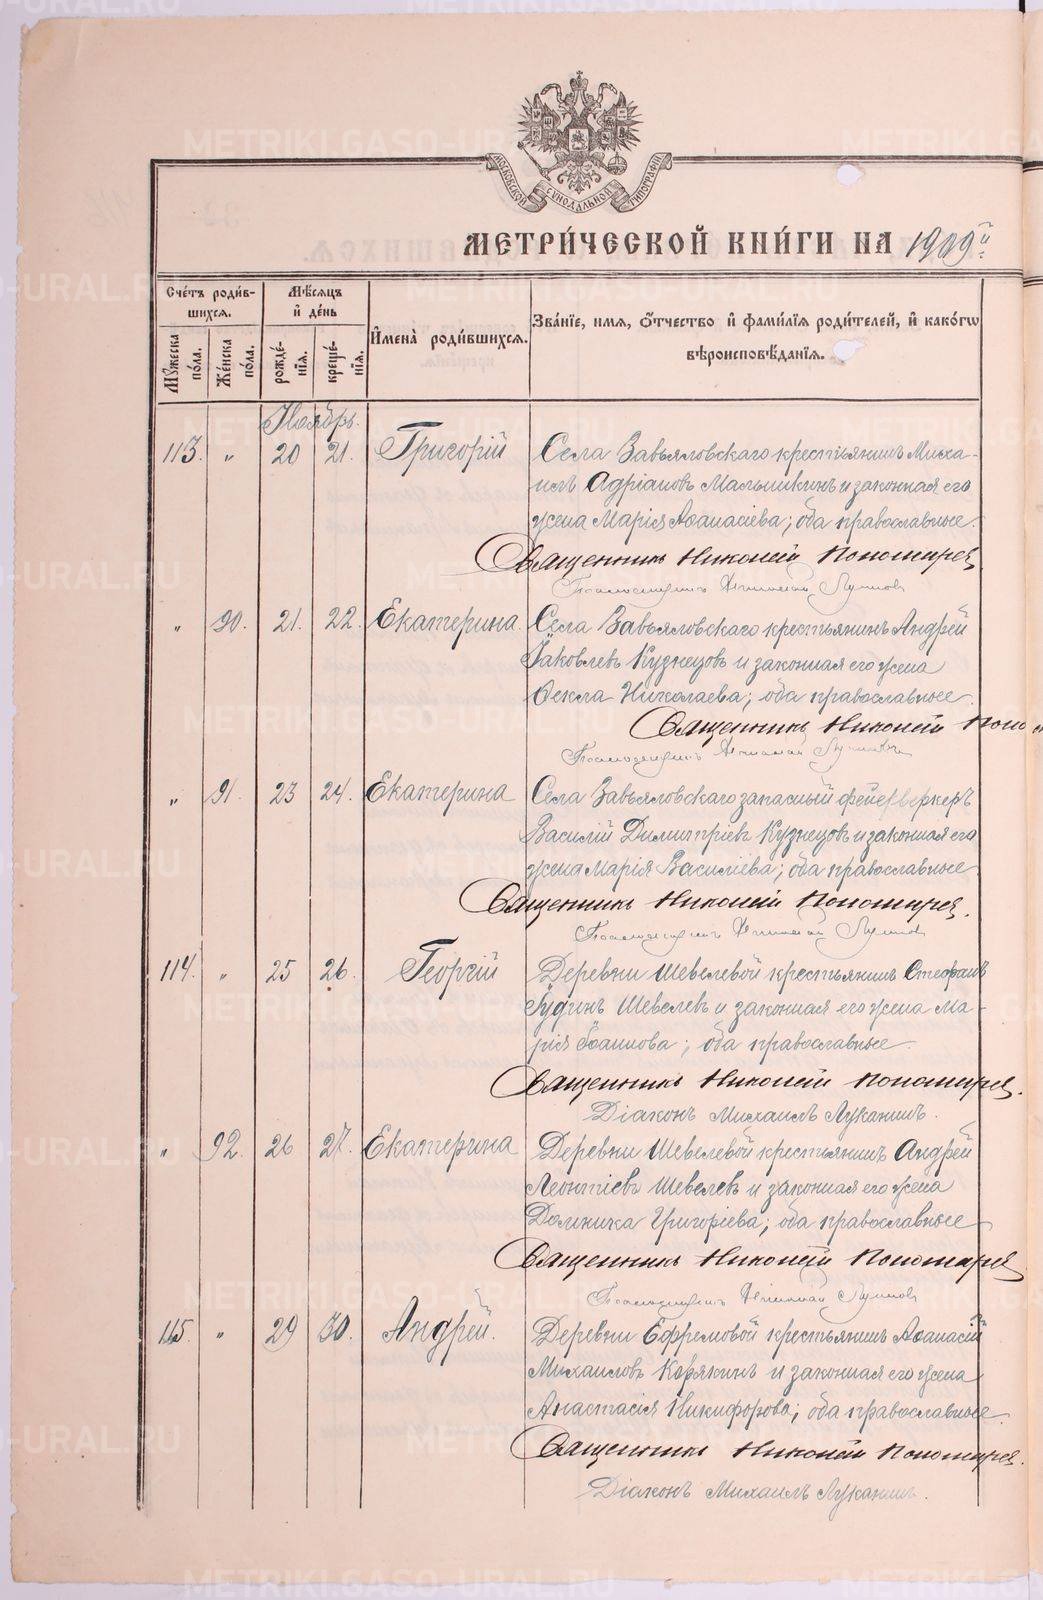 МОСКОВСКОЙ СУНОДАЛЬНОЙ ТИПОГРАФІИ
МЕТРИ́ЧЕСКОЙ КНИ́ГИ НА 1909й
Сче́тъ роди́вшихся.
Мѣ́сяцъ и де́нь
Имена̀ роди́вшихся.
Зва́нїе, имя, ѻ́тчество и фами́лїя роди́телей, и како́гѡ вѣроисповѣ́данїя.
Мꙋ́жеска по́ла.
Же́нска по́ла.
рожде́нїя.
креще́нїя.
Ноябрь.
113. „ 20 21. Григорій Села Завьяловскаго крестьянинъ Миха-
илъ Адріановъ Мальшикинъ и законная его
жена Марія Аѳанасіева; оба православные.
Священникъ Николай Пономарев
Псаломщикъ
„ 90. 21. 22. Екатерина. Села Завьяловскаго крестьянинъ Андрей
Іаковлевъ Кузнецовъ и законная его жена
Ѳекла Николаева; оба православные.
Священникъ Николай Поно
Псаломщикъ
„ 91. 23 24. Екатерина Села Завьяловскаго запасный фейерверкеръ
Василій Димитріевъ Кузнецовъ и законная его
жена Марія Василіева; оба православные
Священникъ Николай Пономарев.
Псаломщикъ
114. „ 25 26. Георгій Деревни Шевелевой крестьянинъ Стефанъ
Гудинъ Шевелевъ и законная его жена Ма-
рія Іоаннова; оба православные.
Священникъ Николай Пономарев.
Діаконъ Михаилъ Луканинъ.
„ 92. 26 27. Екатерина Деревни Шевелевой крестьянинъ Андрей
Леонтіевъ Шевелевъ и законная его жена
Домника Григоріева; оба православные
Священникъ Николай Пономарев
Псаломщикъ
115. „ 29 30. Андрей. Деревни Ефремовой крестьянинъ Аѳанасій
Михаиловъ Корякинъ и законная его жена
Анастасія Никифорова; оба православные.
Священникъ Николай Пономарев.
Діаконъ Михаилъ Луканинъ.
METRIKI.GASO-URAL.RU